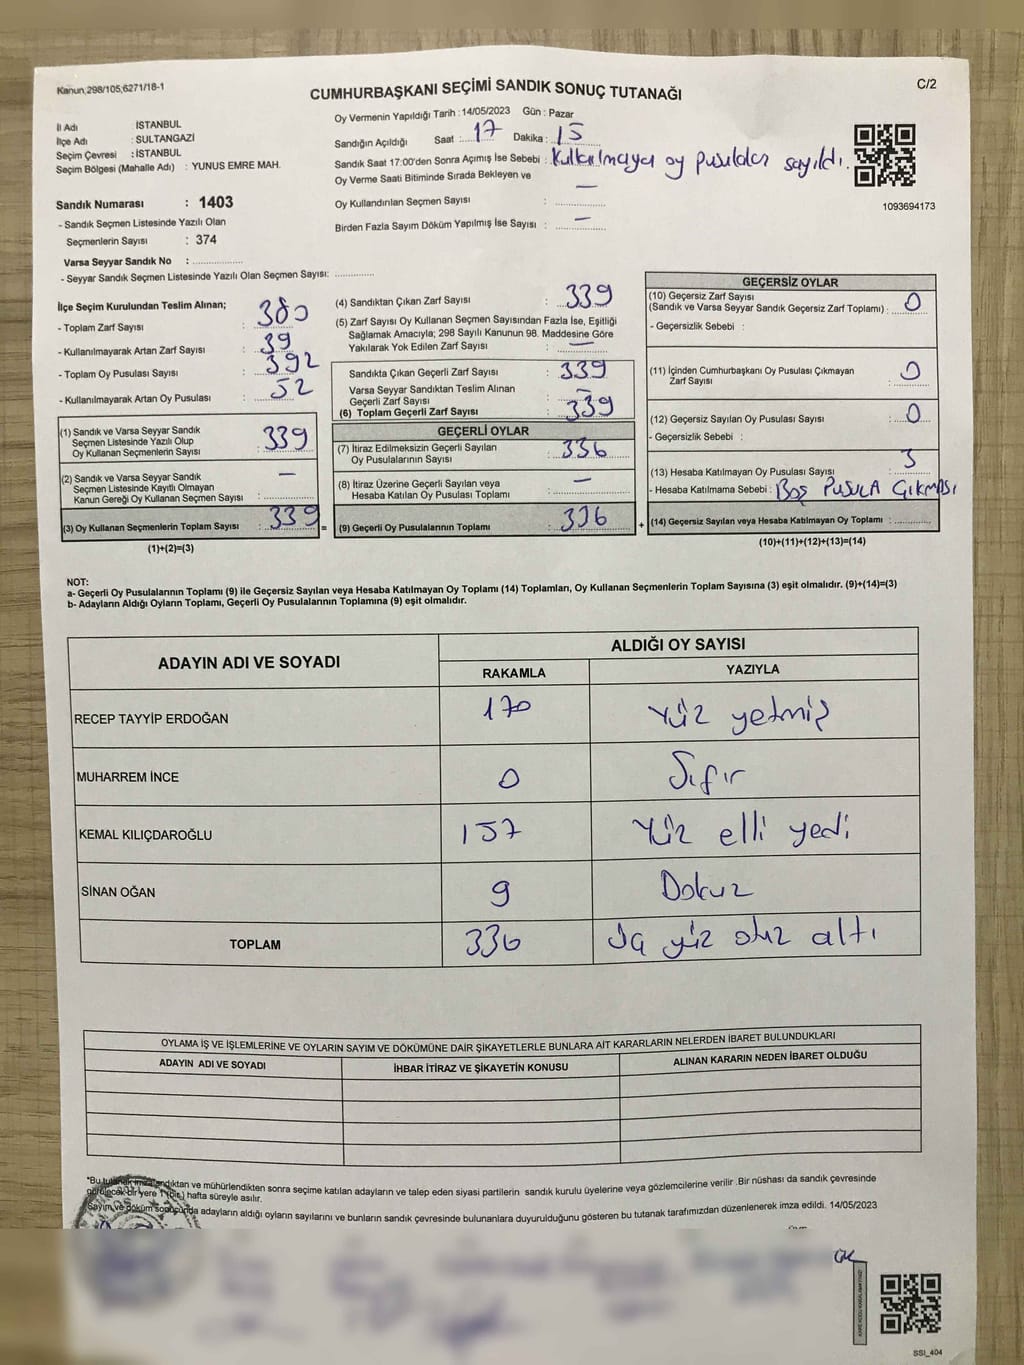 Kanun;298/105,6271/18-1
CUMHURBAŞKANI SEÇİMİ SANDIK SONUÇ TUTANAĞI
C/2
İl Adı : İSTANBUL
İlçe Adı : SULTANGAZİ
Seçim Çevresi : İSTANBUL
Seçim Bölgesi (Mahalle Adı) : YUNUS EMRE MAH.
Sandık Numarası : 1403
- Sandık Seçmen Listesinde Yazılı Olan
Seçmenlerin Sayısı : 374
Varsa Seyyar Sandık No : ..................
- Seyyar Sandık Seçmen Listesinde Yazılı Olan Seçmen Sayısı: ..............
Oy Vermenin Yapıldığı Tarih : 14/05/2023 Gün : Pazar
Sandığın Açıldığı Saat : 17 Dakika : 15
Sandık Saat 17:00'den Sonra Açımış İse Sebebi : Kullanılmayan oy pusulaları sayıldı.
Oy Verme Saati Bitiminde Sırada Bekleyen ve
Oy Kullandırılan Seçmen Sayısı : —
Birden Fazla Sayım Döküm Yapılmış İse Sayısı : —
1093694173
İlçe Seçim Kurulundan Teslim Alınan;
- Toplam Zarf Sayısı : 380
- Kullanılmayarak Artan Zarf Sayısı : 39
- Toplam Oy Pusulası Sayısı : 392
- Kullanılmayarak Artan Oy Pusulası : 52
(1) Sandık ve Varsa Seyyar Sandık
Seçmen Listesinde Yazılı Olup
Oy Kullanan Seçmenlerin Sayısı : 339
(2) Sandık ve Varsa Seyyar Sandık
Seçmen Listesinde Kayıtlı Olmayan
Kanun Gereği Oy Kullanan Seçmen Sayısı : —
(3) Oy Kullanan Seçmenlerin Toplam Sayısı : 339 =
(1)+(2)=(3)
(4) Sandıktan Çıkan Zarf Sayısı : 339
(5) Zarf Sayısı Oy Kullanan Seçmen Sayısından Fazla İse, Eşitliği
Sağlamak Amacıyla; 298 Sayılı Kanunun 98. Maddesine Göre
Yakılarak Yok Edilen Zarf Sayısı : —
Sandıkta Çıkan Geçerli Zarf Sayısı : 339
Varsa Seyyar Sandıktan Teslim Alınan
Geçerli Zarf Sayısı : —
(6) Toplam Geçerli Zarf Sayısı : 339
GEÇERLİ OYLAR
(7) İtiraz Edilmeksizin Geçerli Sayılan
Oy Pusulalarının Sayısı : 336
(8) İtiraz Üzerine Geçerli Sayılan veya
Hesaba Katılan Oy Pusulası Toplamı : —
(9) Geçerli Oy Pusulalarının Toplamı : 336 +
GEÇERSİZ OYLAR
(10) Geçersiz Zarf Sayısı
(Sandık ve Varsa Seyyar Sandık Geçersiz Zarf Toplamı) : 0
- Geçersizlik Sebebi :
(11) İçinden Cumhurbaşkanı Oy Pusulası Çıkmayan
Zarf Sayısı : 0
(12) Geçersiz Sayılan Oy Pusulası Sayısı : 0
- Geçersizlik Sebebi :
(13) Hesaba Katılmayan Oy Pusulası Sayısı : 3
- Hesaba Katılmama Sebebi : BOŞ PUSULA ÇIKMASI
(14) Geçersiz Sayılan veya Hesaba Katılmayan Oy Toplamı : ............
(10)+(11)+(12)+(13)=(14)
NOT:
a- Geçerli Oy Pusulalarının Toplamı (9) ile Geçersiz Sayılan veya Hesaba Katılmayan Oy Toplamı (14) Toplamları, Oy Kullanan Seçmenlerin Toplam Sayısına (3) eşit olmalıdır. (9)+(14)=(3)
b- Adayların Aldığı Oyların Toplamı, Geçerli Oy Pusulalarının Toplamına (9) eşit olmalıdır.
ADAYIN ADI VE SOYADI
ALDIĞI OY SAYISI
RAKAMLA YAZIYLA
RECEP TAYYİP ERDOĞAN 170 Yüz yetmiş
MUHARREM İNCE 0 Sıfır
KEMAL KILIÇDAROĞLU 157 Yüz elli yedi
SİNAN OĞAN 9 Dokuz
TOPLAM 336 Üç yüz otuz altı
OYLAMA İŞ VE İŞLEMLERİNE VE OYLARIN SAYIM VE DÖKÜMÜNE DAİR ŞİKAYETLERLE BUNLARA AİT KARARLARIN NELERDEN İBARET BULUNDUKLARI
ADAYIN ADI VE SOYADI İHBAR İTİRAZ VE ŞİKAYETİN KONUSU ALINAN KARARIN NEDEN İBARET OLDUĞU
*Bu tutanak imzalandıktan ve mühürlendikten sonra seçime katılan adayların ve talep eden siyasi partilerin sandık kurulu üyelerine veya gözlemcilerine verilir .Bir nüshası da sandık çevresinde
görülecek bir yere 1 (bir) hafta süreyle asılır.
Sayım ve döküm sonucunda adayların aldığı oyların sayılarını ve bunların sandık çevresinde bulunanlara duyurulduğunu gösteren bu tutanak tarafımızdan düzenlenerek imza edildi. 14/05/2023
SSI_404